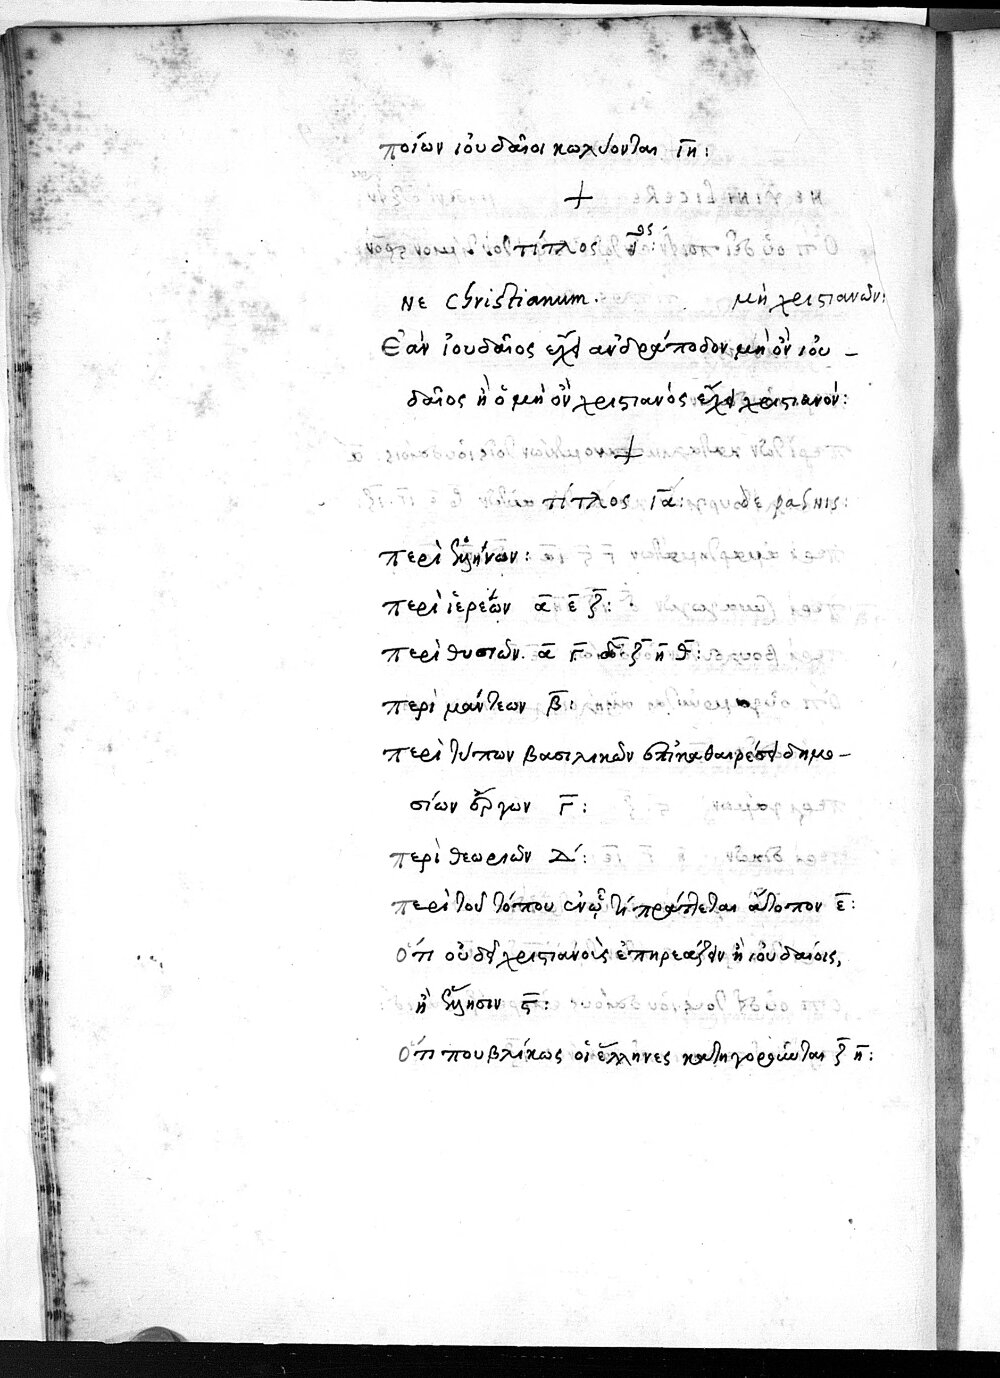 ποίων ἰουδαῖοι κωλύονται ιη:
+
τίτλος ι^ος:
Ne Christianum. μὴ χριστιανῶν:
Ἐὰν ἰουδαῖος ἔχῃ ἀνδράποδον μὴ ὂν ἰου-
δαῖος ἢ ὁ μὴ ὢν χριστιανὸς ἔχῃ χριστιανόν:
+
τίτλος ια: de paganis:
περὶ ἑλλήνων:
περὶ ἱερέων α ε ζ:
περὶ θυσιῶν. α γ δ ζ η θ:
περὶ μάντεων β:
περὶ τύπων βασιλικῶν ἐπὶ καθαιρέσει δημο-
σίων ἔργων γ:
περὶ θεωριῶν Δ:
περὶ τοῦ τόπου ἐν ᾧ τι πράττεται ἄτοπον ε:
Ὅτι οὐ δεῖ χριστιανοὺς ἐπηρεάζειν ἢ ἰουδαίοις,
ἢ ἕλλησιν ς:
Ὅτι πουβλίκως οἱ ἕλληνες κατηγοροῦνται ζ η: